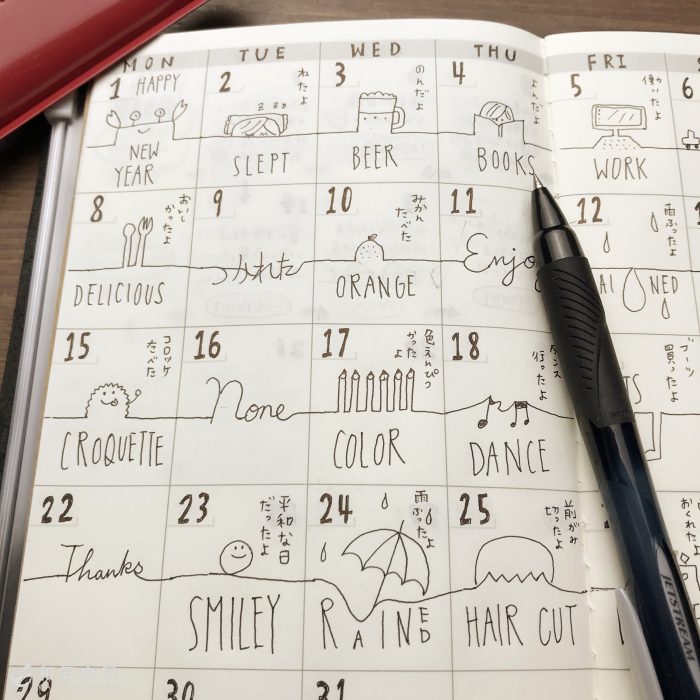 MON TUE WED THU FRI
1 HAPPY NEW YEAR
2 ねたよ zzz SLEPT
3 のんだよ BEER
4 よんだよ BOOKS
5 働いたよ WORK
6
8 おいしかったよ DELICIOUS
9 つかれた
10 みかんたべた ORANGE
11 Enjo
12 雨ふったよ AI NED
15 コロッケたべた CROQUETTE
16 None
17 色えんぴつかったよ COLOR
18 ダンス行ったよ DANCE
ブーツ買ったよ TS
22 Thanks
23 平和な日だったよ SMILEY
24 雨ふったよ RAINED
25 前がみ切ったよ HAIR CUT
おくれた
29 30 31
JETSTREAM